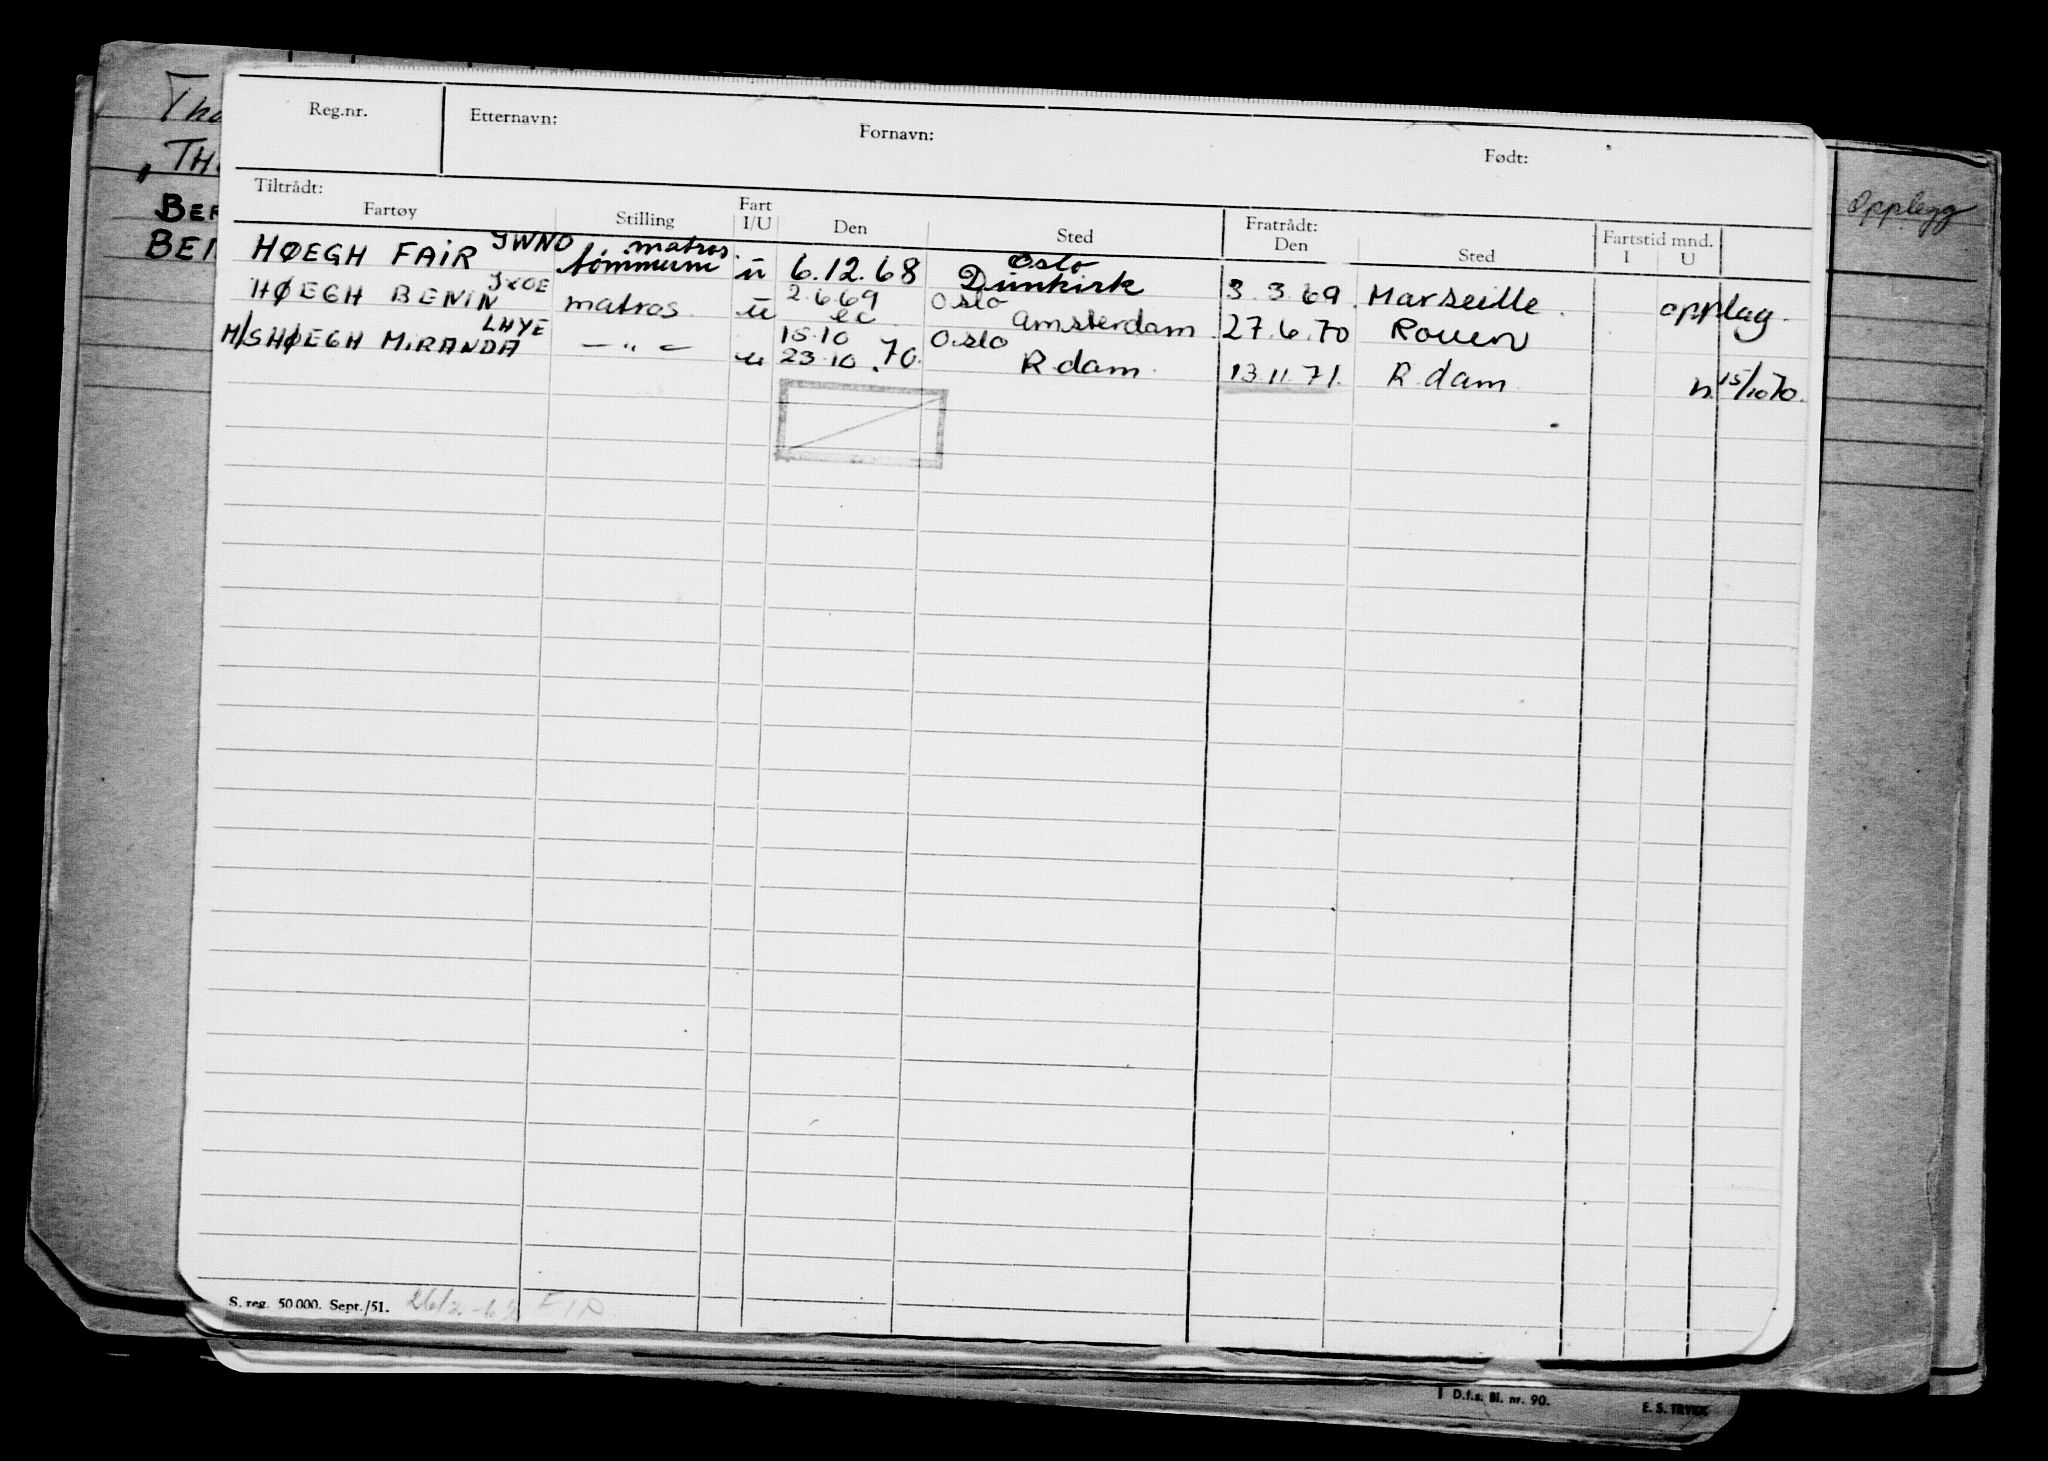 Reg.nr. Etternavn: Fornavn: Født:
Tiltrådt: Fratrådt:
Fartøy Stilling Fart I/U Den Sted Den Sted Fartstid mnd. I U
HØEGH FAIR JWNO tømmerm. matros. u 6.12.68 Oslo Dunkirk 3.3.69. Marseille. opplag.
HØEGH BENIN JXOE matros u 2.6.69 Oslo Amsterdam. 27.6.70 Rouen
M/S HØEGH MIRANDA LHYE — " — u 15.10 23.10.70. Oslo R.dam. 13.11.71. R.dam h. 15/10 70.
Opplegg
S. reg. 50 000. Sept./51.
D.f.s. Bl. nr. 90.
E. S. TRYKK